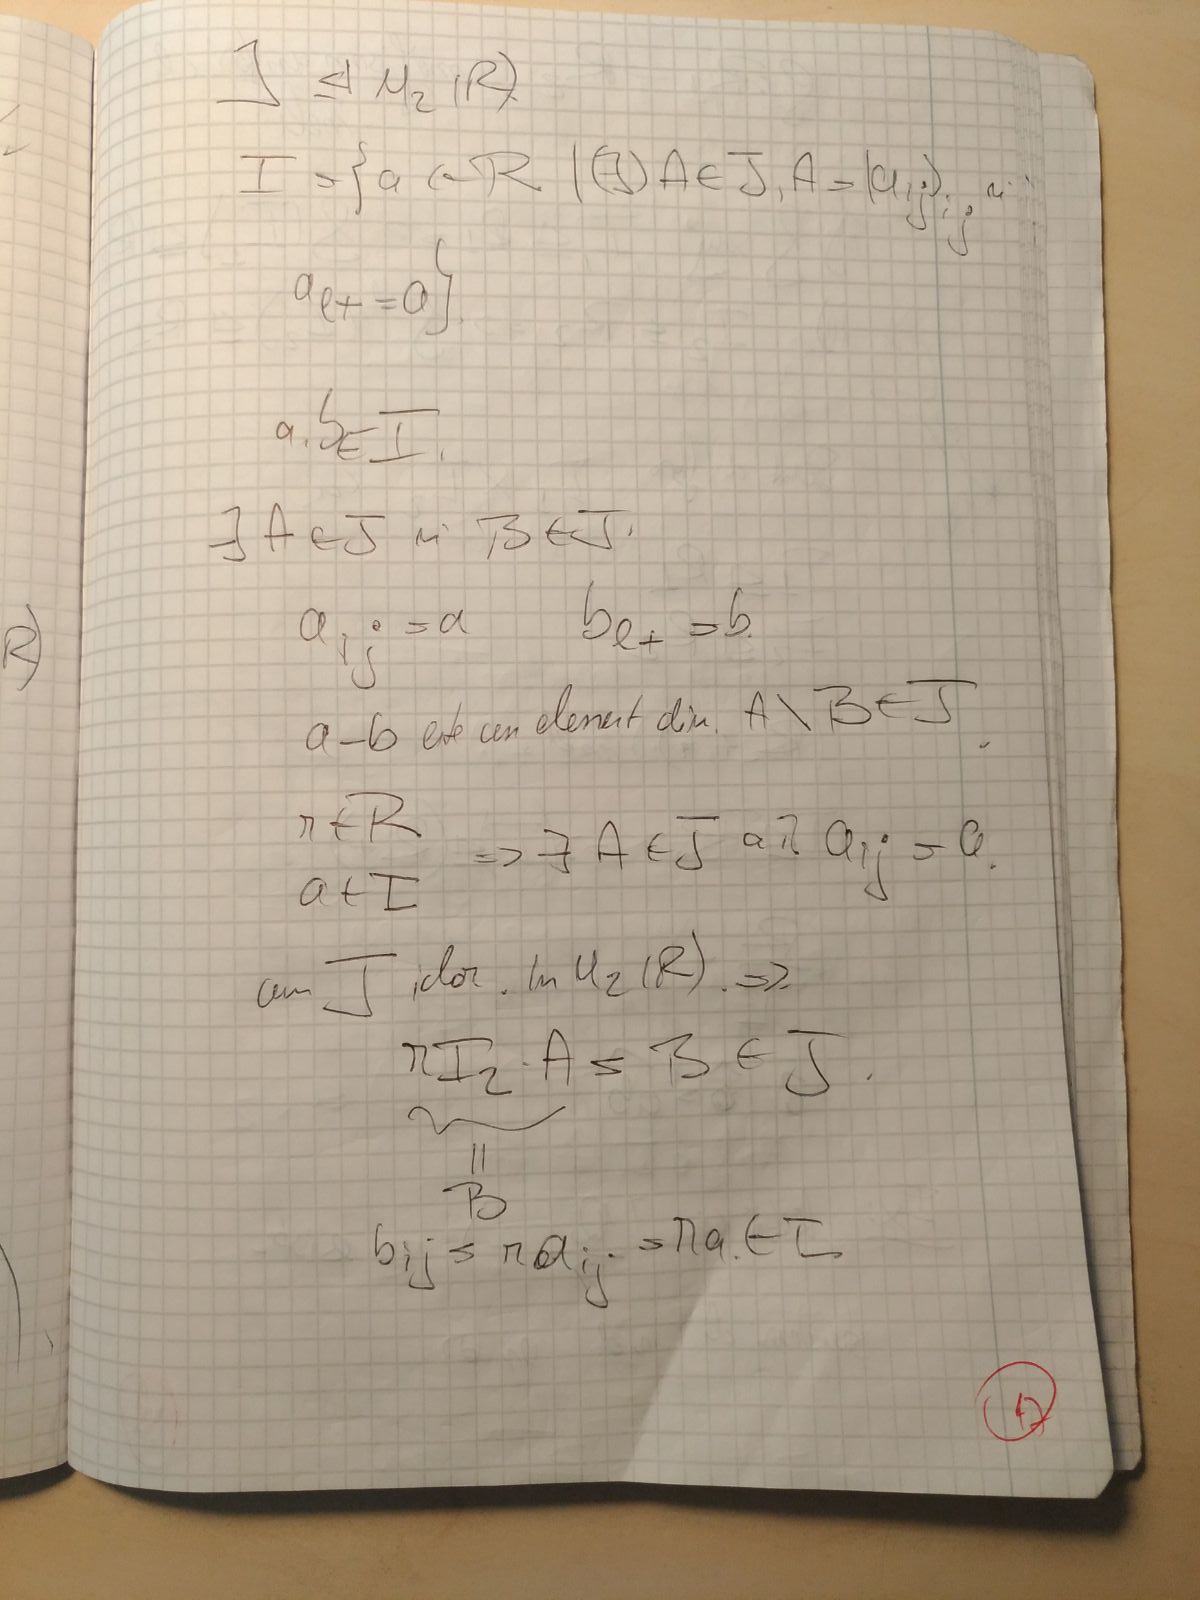 J ⊴ M₂(R)
I = {a ∈ R | (∃) A ∈ J, A = (a_ij)_i,j și
a_et = a}.
a, b ∈ I.
∃ A ∈ J și B ∈ J.
a_ij = a b_et = b.
a-b este un element din. A \ B ∈ J.
r ∈ R
a ∈ I => ∃ A ∈ J aî a_ij = a.
cum J ideal în M₂(R). =>
r I₂ · A = B ∈ J.
||
B
b_ij = r a_ij = ra. ∈ I
R)